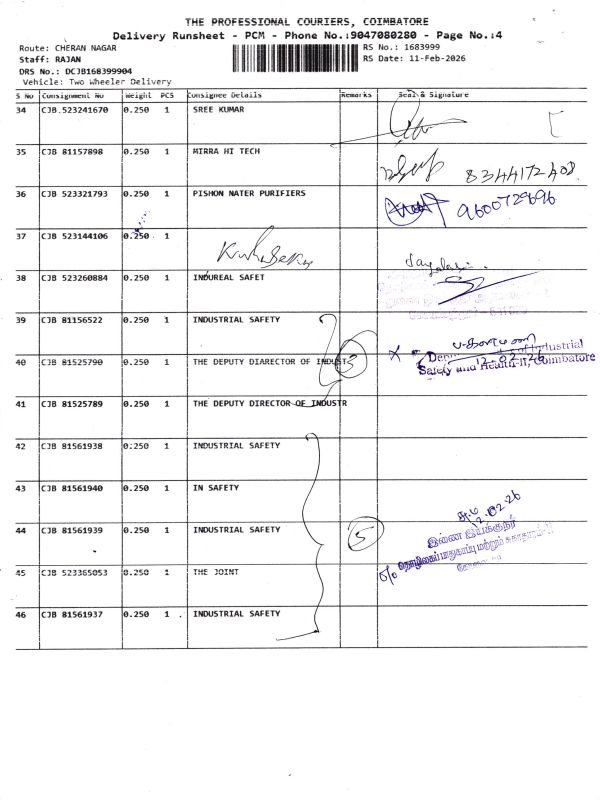 THE PROFESSIONAL COURIERS, COIMBATORE
Delivery Runsheet - PCM - Phone No.:9047080280 - Page No.:4
Route: CHERAN NAGAR
RS No.: 1683999
Staff: RAJAN
RS Date: 11-Feb-2026
DRS No.: DCJB168399904
Vehicle: Two Wheeler Delivery
S No Consignment No Weight PCS Consignee Details Remarks Seal & Signature
34 CJB 523241670 0.250 1 SREE KUMAR
35 CJB 81157898 0.250 1 MIRRA HI TECH
8344172408
36 CJB 523321793 0.250 1 PISHON NATER PURIFIERS
9600729696
37 CJB 523144106 0.250 1
38 CJB 523260884 0.250 1 INDUREAL SAFET
39 CJB 81156522 0.250 1 INDUSTRIAL SAFETY
40 CJB 81525790 0.250 1 THE DEPUTY DIARECTOR OF INDUST
3
of Industrial
12.02.26
Safety and Health-II, Coimbatore
41 CJB 81525789 0.250 1 THE DEPUTY DIRECTOR OF INDUSTR
42 CJB 81561938 0.250 1 INDUSTRIAL SAFETY
43 CJB 81561940 0.250 1 IN SAFETY
12.02.26
44 CJB 81561939 0.250 1 INDUSTRIAL SAFETY
5
இணை இயக்குநர்
O/o தொழிலகப் பாதுகாப்பு மற்றும் சுகாதாரம்
45 CJB 523365053 0.250 1 THE JOINT
46 CJB 81561937 0.250 1 INDUSTRIAL SAFETY